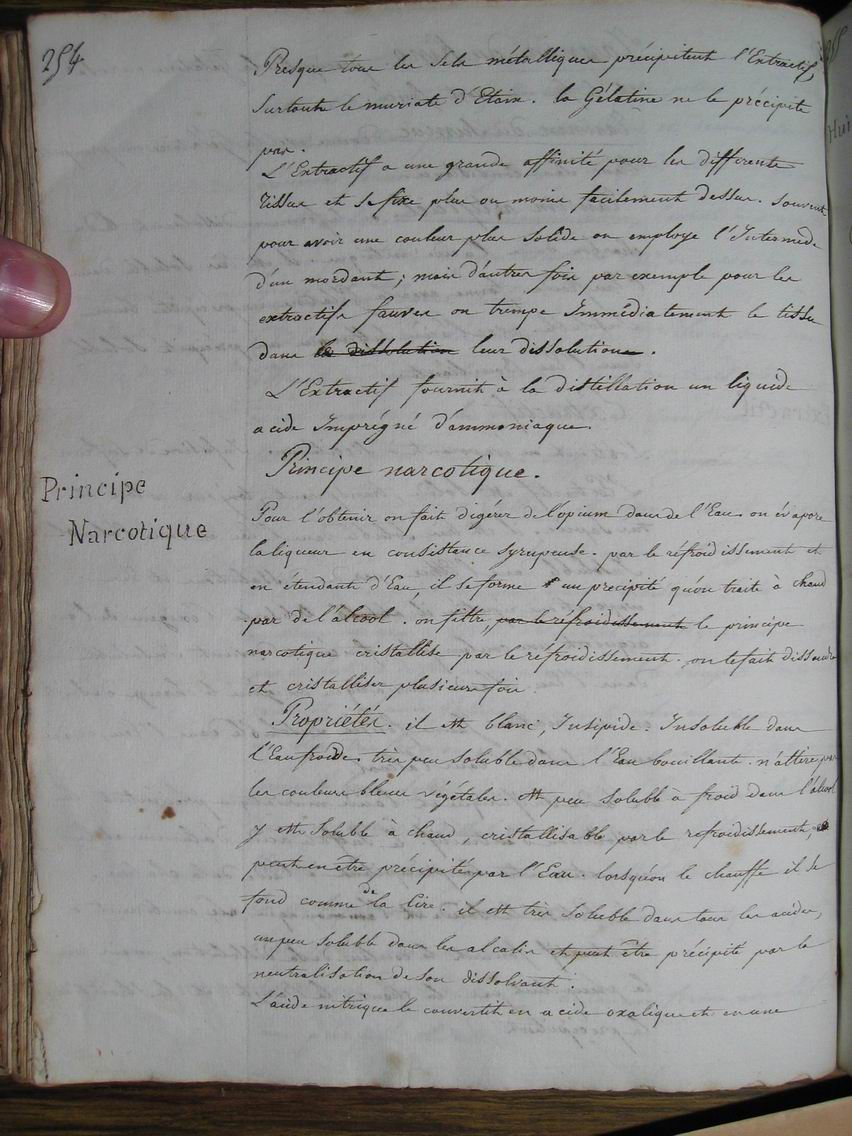 254
Presque tous les sels métalliques précipitent l'Extractif,
surtout le muriate d'Etain. la Gélatine ne le précipite
pas.
L'Extractif a une grande affinité pour les différents
tissus et se fixe plus ou moins facilement dessus. souvent
pour avoir une couleur plus solide on employe l'Intermede
d'un mordant; mais d'autres fois par exemple pour les
extractifs fauves on trempe Immédiatement le tissu
dans la dissolution leur dissolution.
L'Extractif fournit à la distillation un liquide
acide Imprégné d'ammoniaque.
Principe narcotique.
Principe
Narcotique
Pour l'obtenir on fait digérer de l'opium dans de l'Eau. on évapore
la liqueur en consistance syrupeuse. par le réfroidissement et
en étendant d'Eau, il se forme un précipité qu'on traite à chaud
par de l'álcool. on filtre, par le réfroidissement le principe
narcotique cristallise par le réfroidissement. on le fait dissoudre
et cristalliser plusieurs fois
Propriétés. il est blanc, Insipide. Insoluble dans
l'Eau froide. très peu soluble dans l'Eau bouillante. n'altère pas
les couleurs bleues végétales. est peu soluble à froid dans l'álcool
y est soluble à chaud, cristallisable par le refroidissement,
peut en être précipité par l'Eau. lorsqu'on le chauffe il se
fond comme de la Cire. il est très soluble dans tous les acides,
un peu soluble dans les alcalis et peut être précipité par la
neutralisation de son dissolvant.
L'acide nitrique le convertit en acide oxalique et en une
Hui